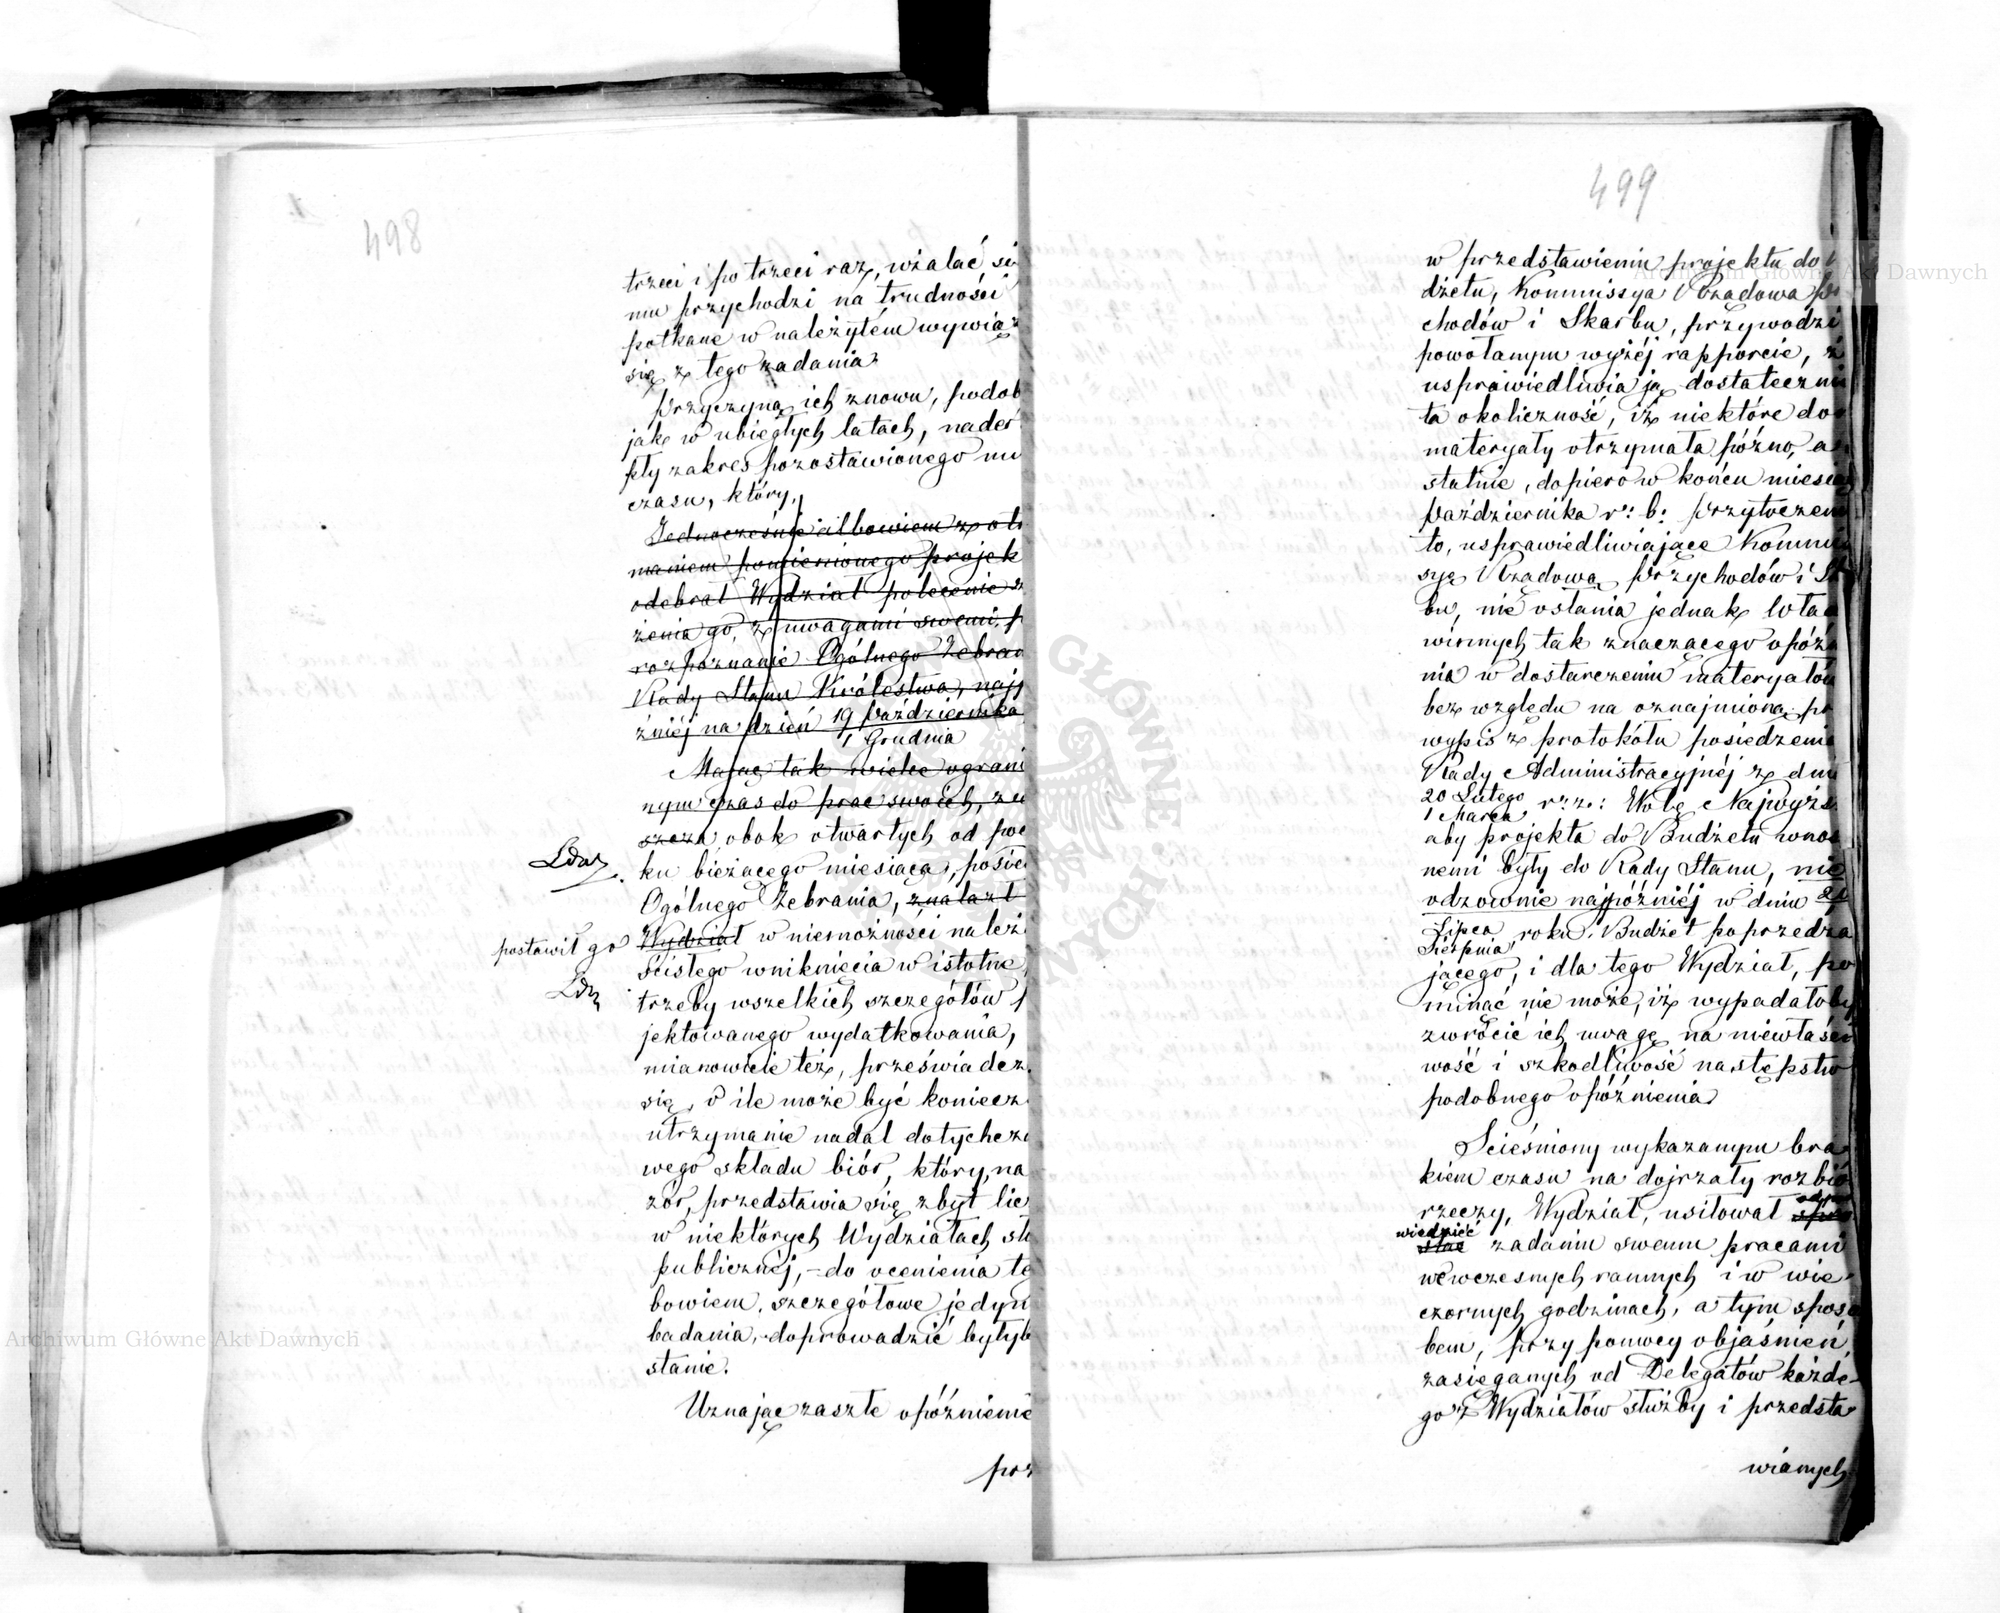 498
trzeci i po trzeci raz, użalać się
mu przychodzi na trudności
potkane w należytém wywiąz
się z tego zadania
Przyczyną ich znowu, podob
jak w ubiegłych latach, nader
pły zakres pozostawionego mu
czasu, który,
Jednocześnie albowiem z otr
maniem pomienionego projek
odebrał Wydział polecenie
żenia go, z uwagami swemi, p
rozpoznanie Ogólnego Zebran
Rady Stanu Królestwa, najp
źniéj na dzień 19 Października
1 Grudnia
Mając tak wielce ograni
nym czas do prac swoich, zw
szcza obok otwartych od po
ku bieżącego miesiąca, posie
Ogólnego Zebrania, znalazł
postawił go
Wydział w niemożności należ
ścisłego wniknięcia w istotne
trzeby wszelkich szczegółów p
jektowanego wydatkowania,
mianowicie też, przeświadcz
się, o ile może być koniecz
utrzymanie nadal dotychcza
wego składu biór, który, na
zór, przedstawia się zbyt lic
w niektórych Wydziałach sł
publicznéj, – do ocenienia te
bowiem, szczegółowe jedyn
badania, doprowadzić byłyb
stanie.
Uznając zaszłe opóźnienie
prz
499
w przedstawieniu projektu do b
dżetu, Kommissya Rządowa Pr
chodów i Skarbu, przywodzi
powołanym wyżéj rapporcie, ż
usprawiedliwia ją dostateczni
ta okoliczność, iż niektóre do
materyały otrzymała późno, a
statnie, dopiero w końcu miesią
Października r: b: Przytoczeni
to, usprawiedliwiające Kommis
syę Rządową Przychodów i S
bu, nie osłania jednak lotu
winnych tak znaczącego opóź
nia w dostarczeniu materyałów
bez względu na oznajmioną pr
wypis z protokółu posiedzeni
Rady Administracyjnéj z dni
20 Lutego
1 Marca r: z: Wolę Najwyżs
aby projekta do Budżetu wnos
nemi były do Rady Stanu, nie
odzownie najpóźniéj w dniu 20
Lipca
Sierpnia roku Budżet poprzedza
jącego, i dla tego Wydział, po
minąć nie może, iż wypadałoby
zwrócić ich uwagę na niewłaści
wość i szkodliwość następstw
podobnego opóźnienia
Ścieśniony wykazanym bra
kiem czasu na dojrzały rozbió
odpo
rzeczy, Wydział, usiłował spro
wiedzieć
stać zadaniu swemu pracami
we wczesnych rannych i w wie
czornych godzinach, a tym sposo
bem, przy pomocy objaśnień,
zasięganych od Delegatów każde
go z Wydziałów służby i przedsta
wianych
Archiwum Główne Akt Dawnych
Archiwum Główne Akt Dawnych